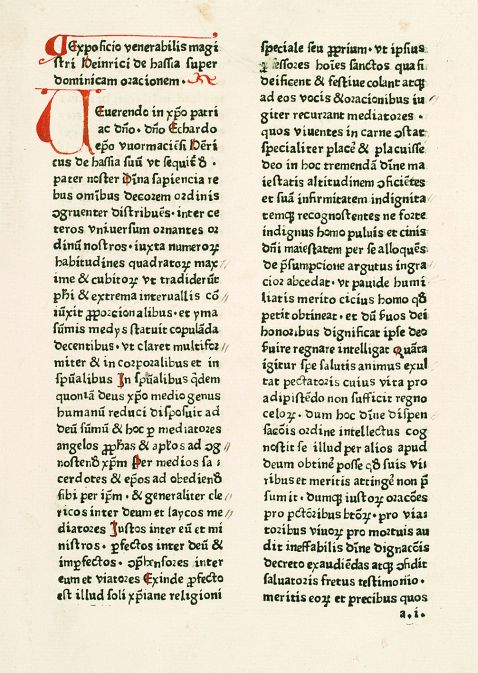 Exposicio venerabilis magi
stri Heinrici de hassia super
dominicam oracionem.
Reuerendo in xp̄o patri
ac dn̄o. dn̄o Echardo
ep̄o vuormacien̄si Hēri
cus de hassia suū vt sequiť ꝙ.
pater noster Diīna sapiencia re
bus om̄ibus decorem ordinis
ↄgruenter distribuēs. inter ce
teros vniuersum ornantes or
dinū nostros. iuxta numeroꝝ
habitudines quadratoꝝ max
ime & cubitoꝝ vt tradiderūt
ph̄i & extrema interuallis cō
iūxit ꝓporcionalibus. et yma
sūmis medys statuit copulāda
decentibus. vt claret multifor
miter & in corporalibus et in
sp̄ualibus In sp̄ualibus q̄dem
quoniā deus xp̄o medio genus
humanū reduci disposuit ad
deū sūmū & hoc ꝑ mediatores
angelos ꝓph̄as & apl̄os ad ↄg
nostend̄ xp̄m Per medios sa-
cerdotes & ep̄os ad obediend̄
sibi per ip̄m. & generaliter cle
ricos inter deum et laycos me
diatores Iustos inter eū et mi
nistros. ꝑfectos inter deū &
imꝑfectos. ↄp̄hensores inter
eum et viatores Exinde ꝑfecto
est illud soli xp̄iane religioni
speciale seu ꝓprium. vt ipsius
ꝓfessores hoīes sanctos quasi
deificent & festiue colant atqꝫ
ad eos vocis & oracionibus iu
giter recurrant mediatores.
quos viuentes in carne ↄstat
specialiter placē & placuisse
deo in hoc tremendā diīne ma
iestatis altitudinem ↄficiētes
et suā infirmitatem indignita
temqꝫ recognostentes ne forte
indignus homo puluis et cinis
diīni maiestatem per se alloquēs
de p̄sumpcione argutus ingra
cior abcedat. vt pauide humi
liatis merito cicius homo qd̄
petit obtineat. et dū suos dei
honoribus dignificat ipse deo
suire regnare intelligat Quāta
igitur spe salutis animus exul
tat peccatoris cuius vita pro
adipistēdo non sufficit regno
celoꝝ. dum hoc diīne dispen
sacōis ordine intellectus cog
nostit se illud per alios apud
deum obtinē posse qd̄ suis vi
ribus et meritis attingē non p̄
sumit. dumqꝫ iustoꝝ oracōes
pro pctōribus btōꝝ. pro via
toribus viuoꝝ pro mortuis au
dit ineffabilis diīne dignacōis
decreto exaudiēdas atqꝫ ↄfidit
saluatoris fretus testimonio.
meritis eoꝝ et precibus quos
a.i.